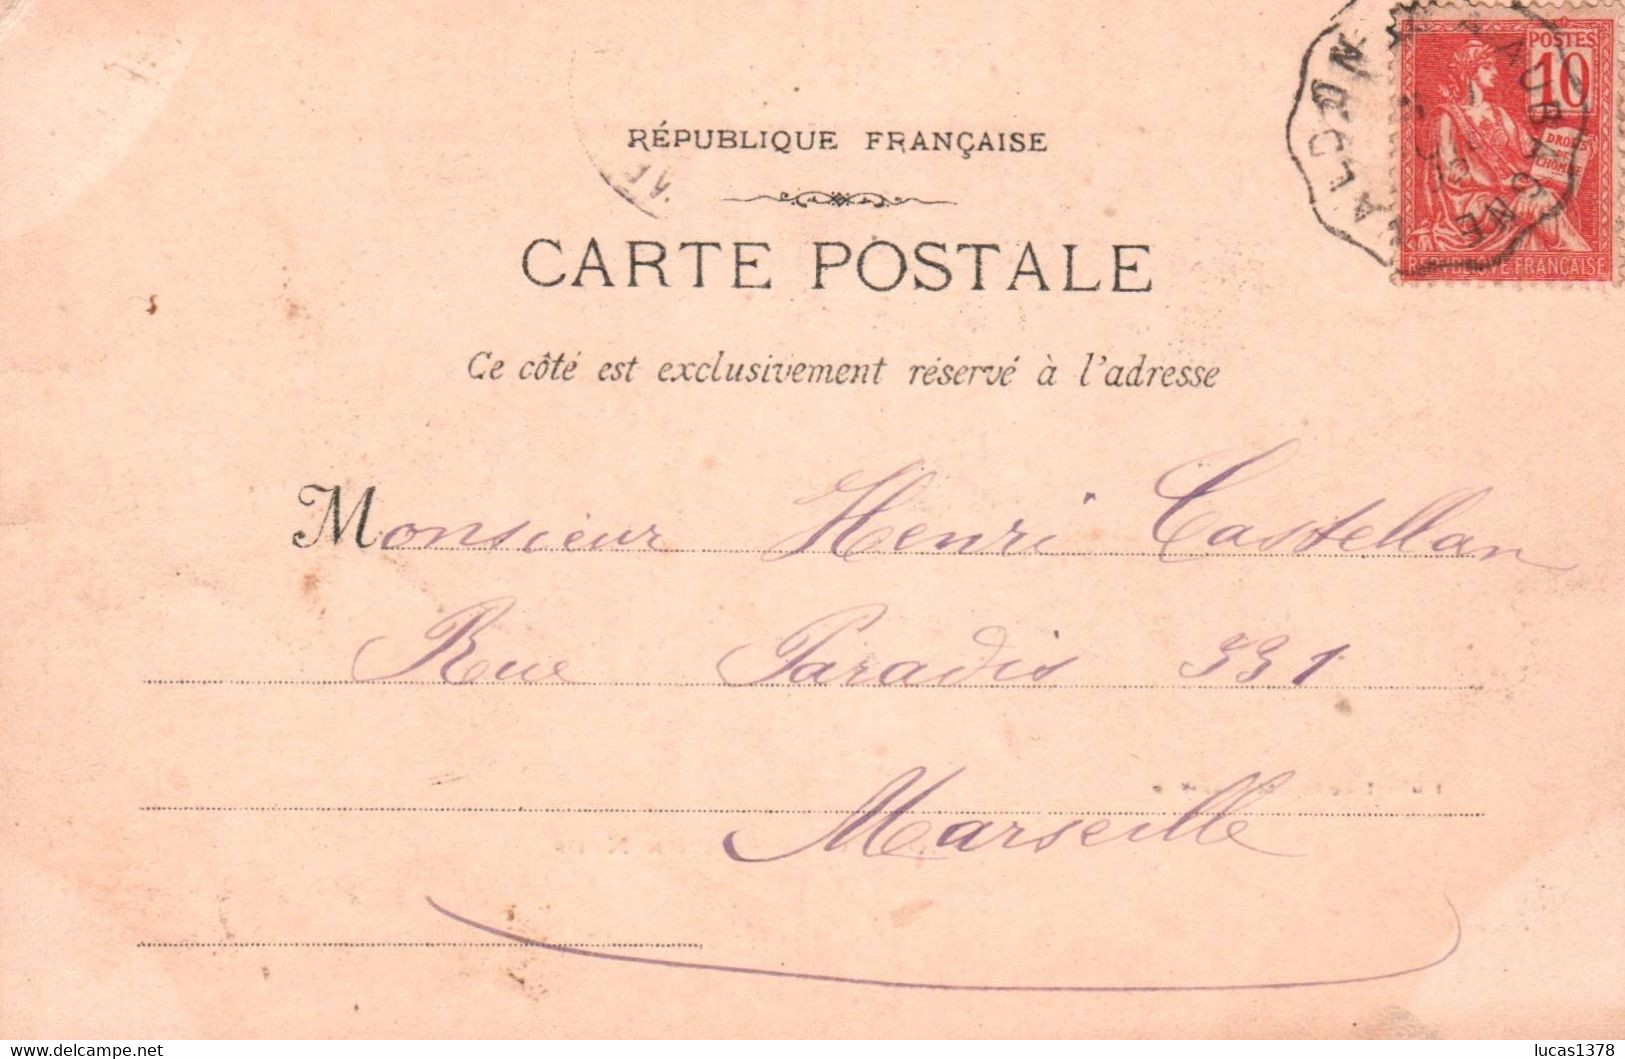 POSTES
10
DROITS
DE
L'HOMME
REPUBLIQUE FRANÇAISE
VALDONNE
AUBAGNE
RÉPUBLIQUE FRANÇAISE
CARTE POSTALE
Ce côté est exclusivement réservé à l'adresse
Monsieur Henri Castellan
Rue Paradis 331
Marseille
delcampe.net
lucas1378